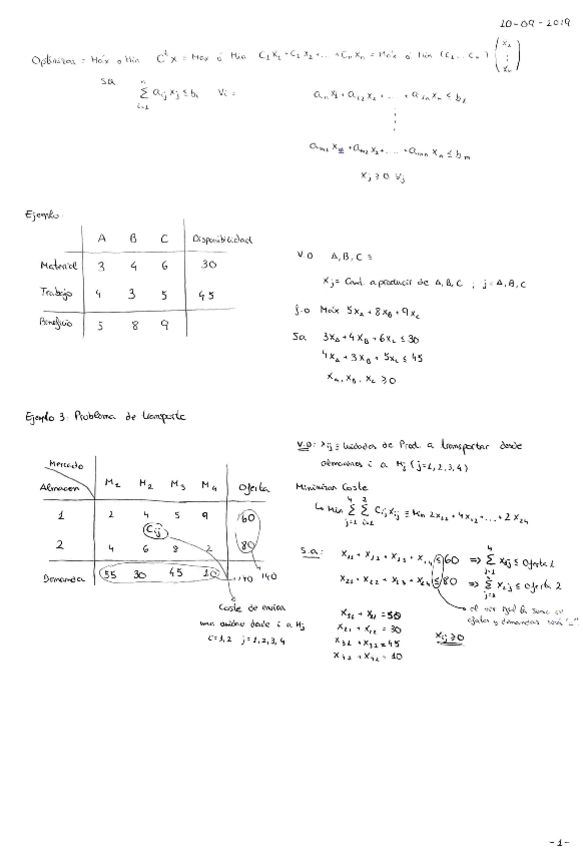 10-09-2019
Optimizar = Máx o Min C^t x = Max ó Min C₁X₁ + C₂X₂ + ... + CₙXₙ = Máx ó Min (C₁ ... Cₙ) (X₁ ⋮ Xₙ)
s.a. Σ aᵢⱼ xⱼ ≤ bᵢ ∀i =
aᵢ₂ x₂ + ... + aₙ xₙ ≤ b₁
⋮
aₘ₁ x + aₘ₂ x₂ + ... + aₘₙ xₙ ≤ bₘ
xⱼ ≥ 0 ∀j
Ejemplo:
A B C Disponibilidad
Material 3 4 6 30
Trabajo 4 3 5 45
Beneficio 5 8 9
V.D A, B, C ≡
xⱼ = Cant. a producir de A, B, C ; j = A, B, C
f.o Máx 5x_A + 8x_B + 9x_C
Sa 3x_A + 4x_B + 6x_C ≤ 30
4x_A + 3x_B + 5x_C ≤ 45
x_A, x_B, x_C ≥ 0
Ejemplo 3: Problema de transporte
Mercado
Almacen M₁ M₂ M₃ M₄ Oferta
1 2 4 5 9 60
Cij
2 4 6 8 2 80
Demanda 55 30 45 10 140 140
Coste de enviar
una unidad desde i a Mj
i=1,2 j=1,2,3,4
V.D: xij ≡ Unidades de Prod. a transportar desde
almacenes i a Mj (j=1,2,3,4)
Minimizar Coste
↳ Min Σ Σ Cij xij ≡ Min 2x₁₁ + 4x₁₂ + ... + 2x₂₄
s.a: x₁₁ + x₁₂ + x₁₃ + x₁₄ ≤ 60 ⇒ Σ xij ≤ Oferta 1
x₂₁ + x₂₂ + x₂₃ + x₂₄ ≤ 80 ⇒ Σ x₂j ≤ Oferta 2
al ser igual la suma de
ofertas y demandas será "="
x₁₁ + x₂₁ = 50
x₂₁ + x₂₂ = 30
x₃₁ + x₃₂ = 45
x₄₁ + x₄₂ = 10
xij ≥ 0
-1-